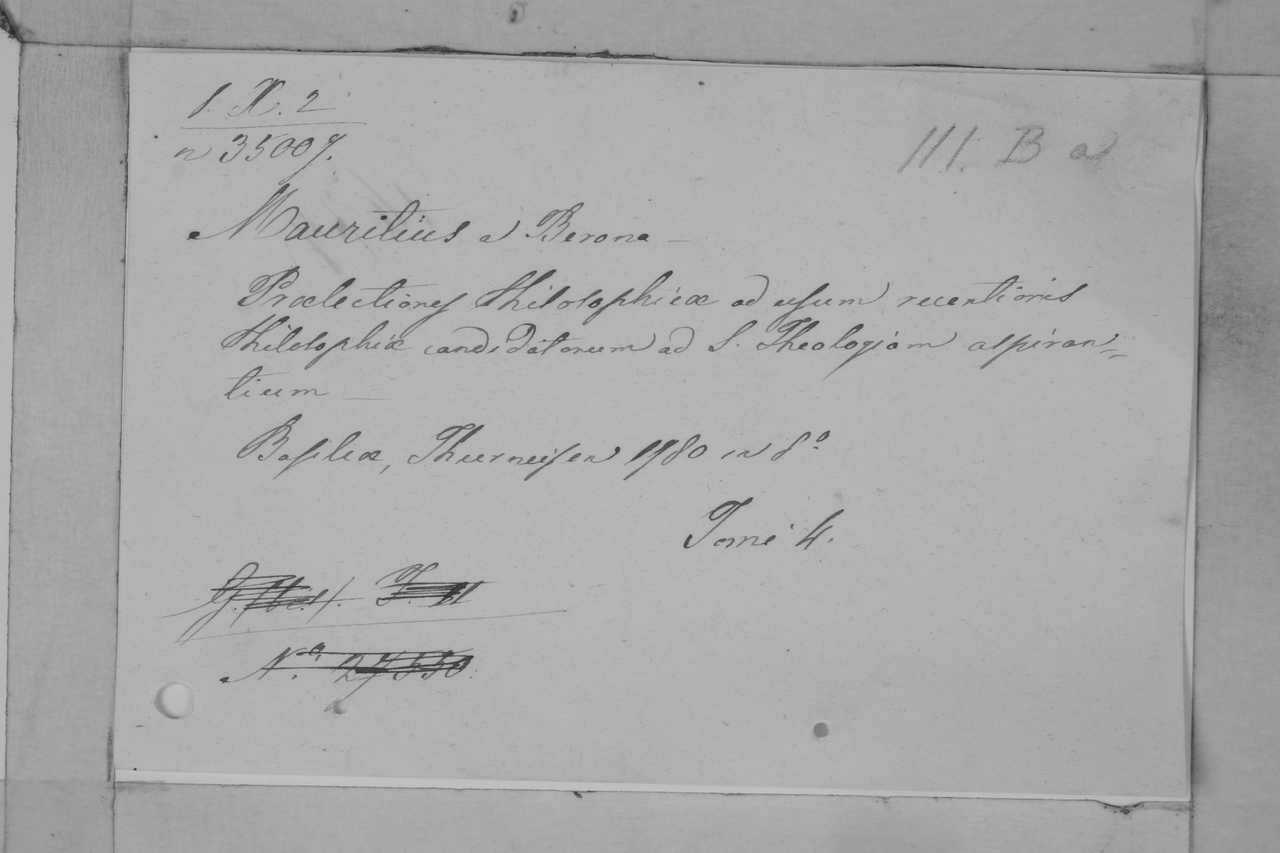 1. X. 2
n 35007.
III. B a
Mauritius a Berona
Prælectiones Philosophicæ ad usum recentioris
Philosophiæ candidatorum ad S. Theologiam aspiran=
tium
Basileæ, Thurneisen 1780 in 8º
Tomi 4.
Nº 27550.